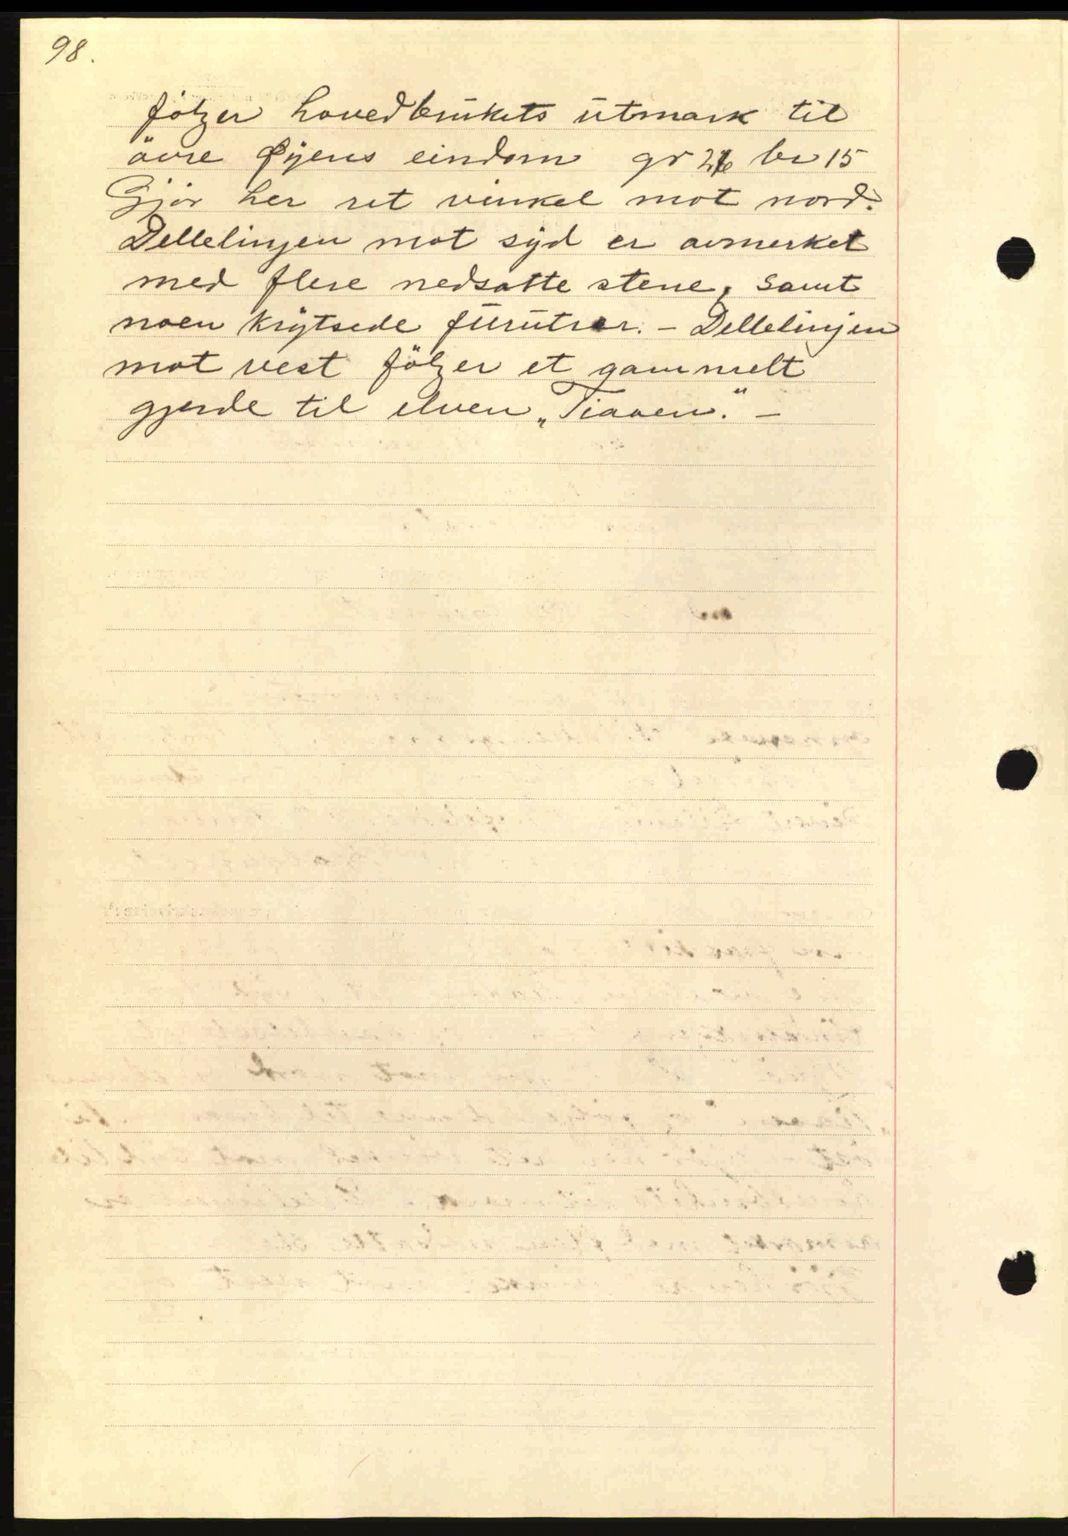 98.
følger hovedbrukets utmark til
øvre Øyens eindom gr 26 br 15
Gjør her ret vinkel mot nord.
Dellelinjen mot syd er avmerket
med flere nedsatte stene, samt
noen krytsede furutrær. – Dellelinjen
mot vest følger et gammelt
gjerde til elven „Tiaaen." –